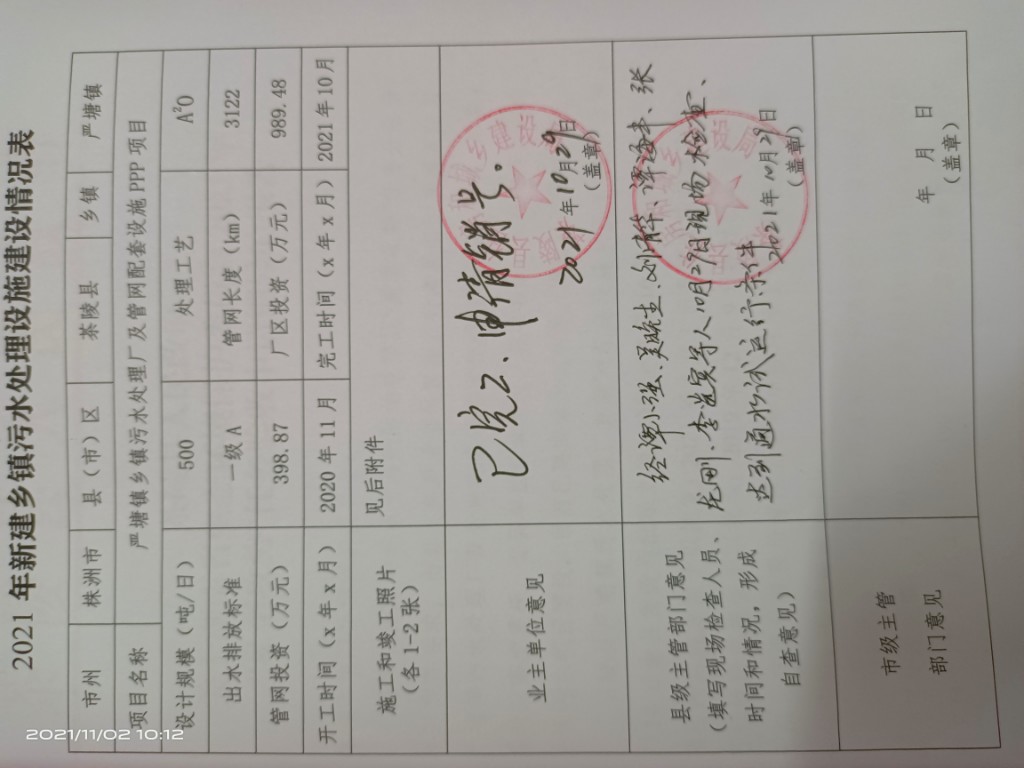 2021 年新建乡镇污水处理设施建设情况表
市州 株洲市 县（市）区 茶陵县 乡镇 严塘镇
项目名称 严塘镇乡镇污水处理厂及管网配套设施 PPP 项目
设计规模（吨/日） 500 处理工艺 A²O
出水排放标准 一级 A 管网长度（km） 3122
管网投资（万元） 398.87 厂区投资（万元） 989.48
开工时间（x 年 x 月） 2020 年 11 月 完工时间（x 年 x 月） 2021 年 10 月
施工和竣工照片
（各 1-2 张）
见后附件
业主单位意见
已完工、申请销号.
2021 年 10 月 29 日
（盖章）
县级主管部门意见
（填写现场检查人员、
时间和情况，形成
自查意见）
经谭小强、
龙刚、 10月29日现场检查、
达到通水试运行条件
2021 年 10 月 29 日
（盖章）
市级主管
部门意见
年 月 日
（盖章）
乡建设
2021/11/02 10:12